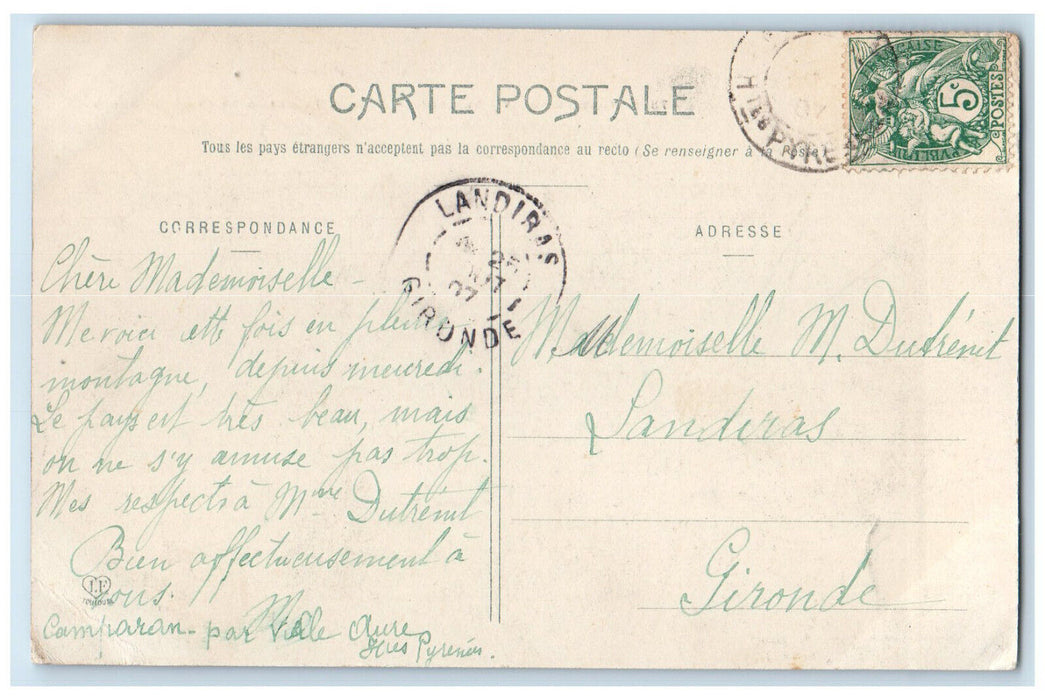 CARTE POSTALE
Tous les pays étrangers n'acceptent pas la correspondance au recto (Se renseigner à la Poste)
CORRESPONDANCE
Chère Mademoiselle -
Me voici cette fois en pleine
montagne, depuis mercredi.
Le pays est très beau, mais
on ne s'y amuse pas trop.
Mes respects à Mme Dutrénit
Bien affectueusement à
vous.
M
Camparan - par Vielle Aure
Htes Pyrénées.
LF
TOULOUSE
LANDIRAS
GIRONDE
ADRESSE
Mademoiselle M. Dutrénit
Landiras
Gironde
HTES PYRE
07
FRANÇAISE
5c
POSTES